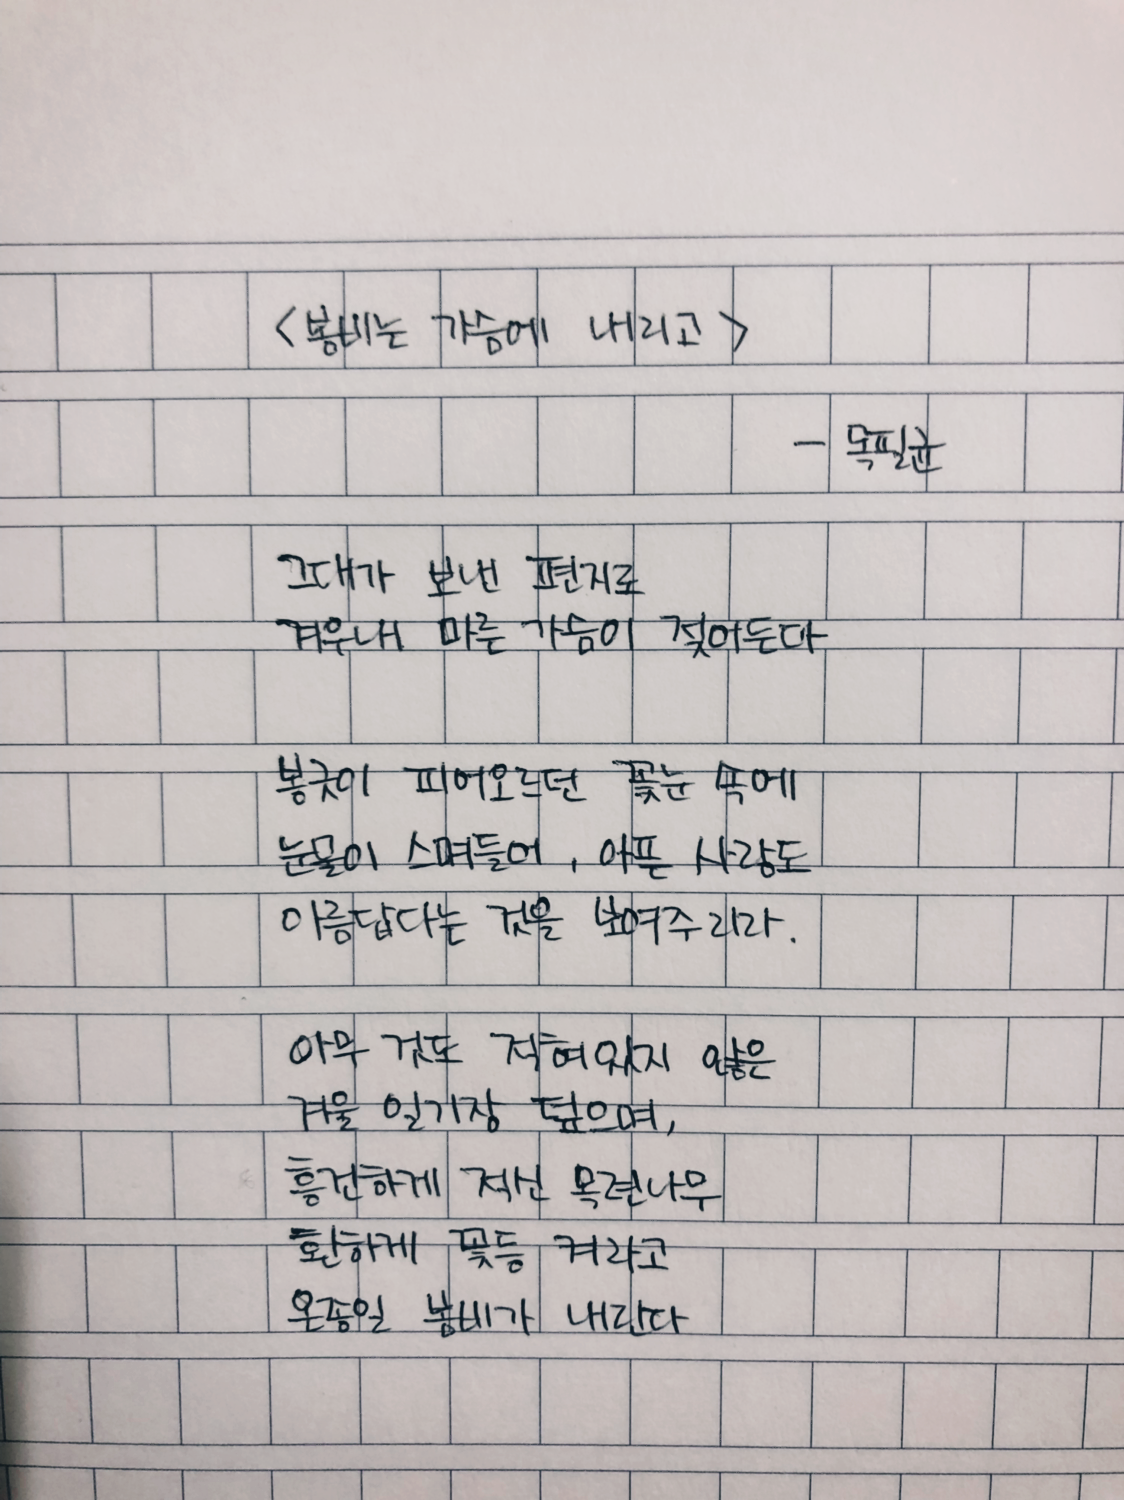 <봄비는 가슴에 내리고>
- 목필균
그대가 보낸 편지로
겨우내 마른 가슴이 젖어든다
봉긋이 피어오르던 꽃눈 속에
눈물이 스며들어, 아픈 사랑도
아름답다는 것을 보여주리라.
아무 것도 적혀있지 않은
겨울 일기장 덮으며,
흥건하게 적신 목련나무
환하게 꽃등 켜라고
온종일 봄비가 내린다